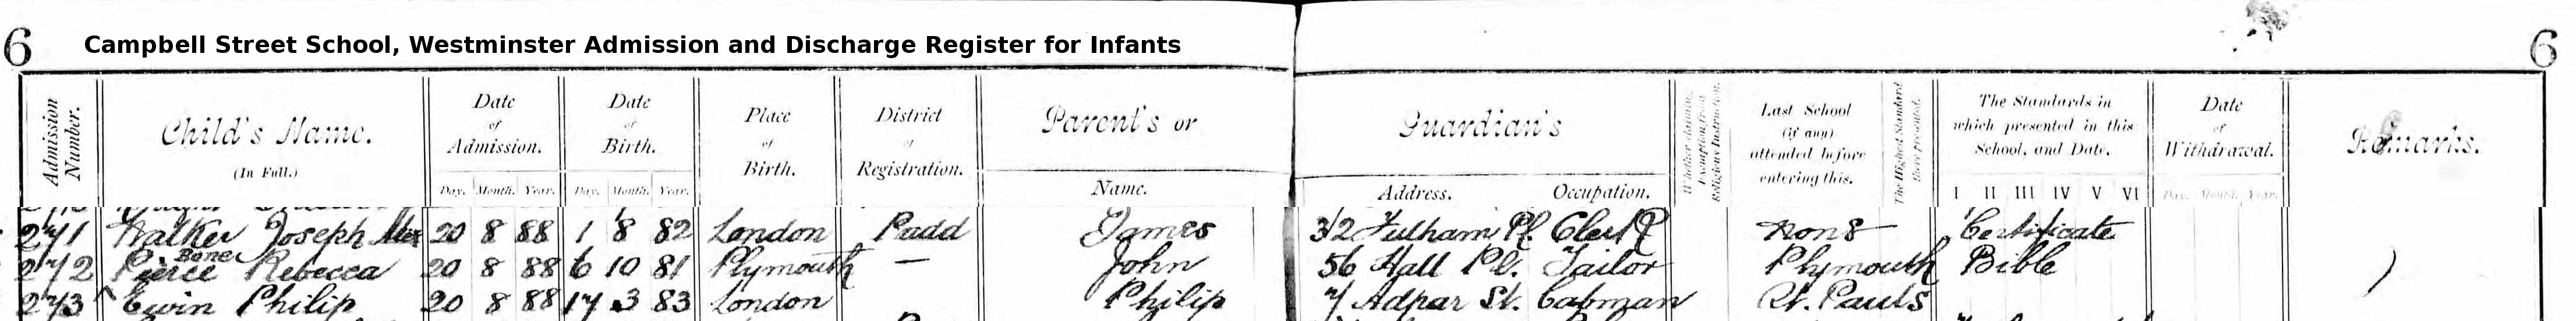 6 Campbell Street School, Westminster Admission and Discharge Register for Infants 6
Admission Number. Child's Name. (In Full.) Date of Admission. Day. Month. Year. Date of Birth. Day. Month. Year. Place of Birth. District of Registration. Parent's or Guardian's Name. Address. Occupation. Whether claiming Exemption from Religious Instruction. Last School (if any) attended before entering this. The Highest Standard there presented. The Standards in which presented in this School, and Date. I II III IV V VI Date of Withdrawal. Day. Month. Year. Remarks.
271 Walker Joseph Alex 20 8 88 1 8 82 London Padd James 32 Fulham Pl. Clerk None Certificate
272 Pierce Bone Rebecca 20 8 88 6 10 81 Plymouth — John 56 Hall Pk. Tailor Plymouth Bible
273 Ewin Philip 20 8 88 17 3 83 London Philip 7 Adpar St. Cabman St. Pauls